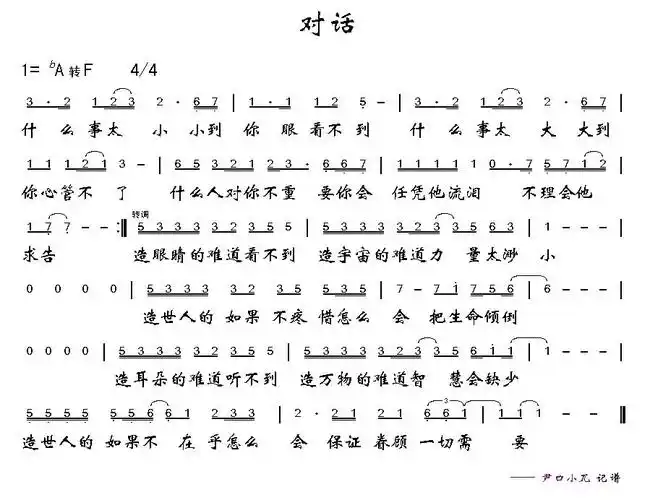 对话
1= ᵇA 转 F 4/4
3 · 2 1 2 3 2 · 6 7 | 1 · 1 1 2 5 - | 3 · 2 1 2 3 2 · 6 7 |
什么事太小小到你眼看不到 什么事太大大到
1 1 1 2 1 3 - | 6 5 3 2 1 2 3 · 6 6 7 | 1 1 1 1 1 0 · 7 5 7 1 2 |
你心管不了 什么人对你不重要你会任凭他流泪 不理会他
转调
1 7 7 - - :‖ 5 3 3 3 3 2 3 5 5 | 5 3 3 3 3 2 3 3 5 6 3 |
求告 造眼睛的难道看不到 造宇宙的难道力量太渺小
0 0 0 0 | 5 3 3 3 3 2 3 5 5 | 7 - 7 1 7 5 6 | 6 - - - |
造世人的如果不疼惜怎么会把生命倾倒
0 0 0 0 | 5 3 3 3 3 2 3 5 5 | 5 3 3 3 3 5 6 1 1 | 1 - - - |
造耳朵的难道听不到 造万物的难道智慧会缺少
5 5 5 5 5 5 6 6 1 2 3 3 | 2 · 2 1 2 1 6 6 1 | 1 1 1 - - ‖
3
造世人的如果不在乎怎么会保证眷顾一切需要
—— 尹口小兀 记谱